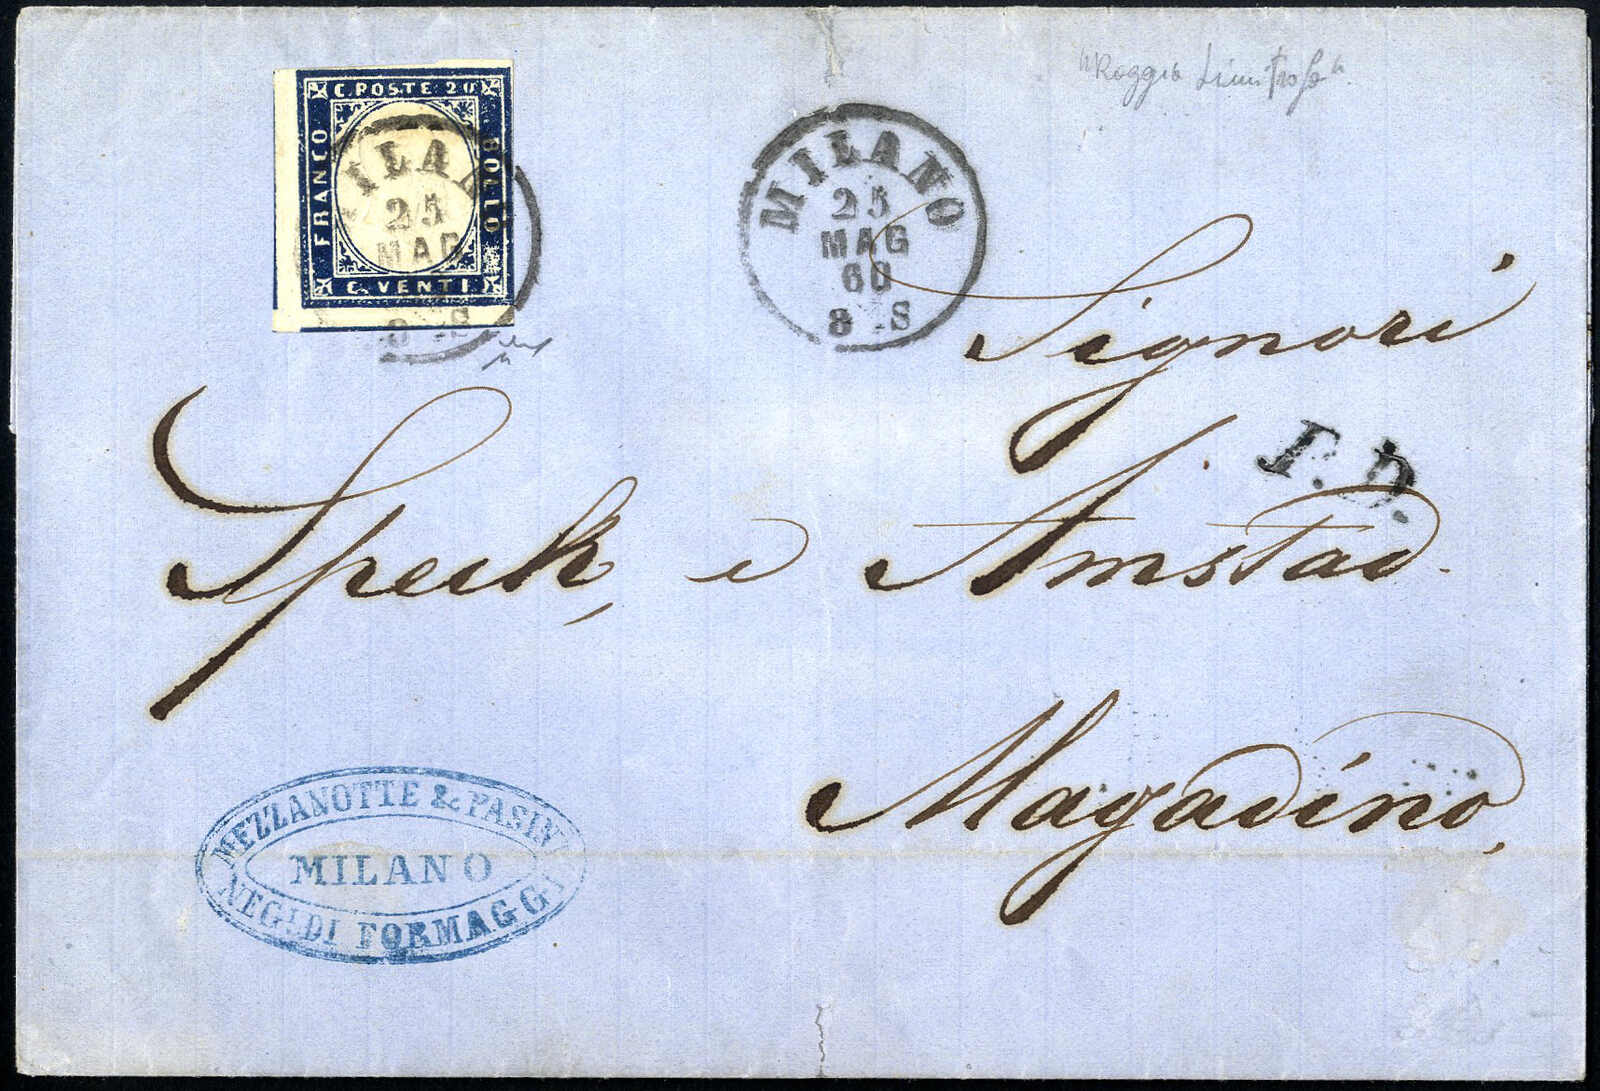 C. POSTE 20
FRANCO
BOLLO
C. VENTI.
MILANO
25
MAG
8 S
MILANO
25
MAG
60
8 S
Signori
P.D.
Speck, e Amstad.
Magadino,
MEZZANOTTE & PASINI
MILANO
NEG. DI FORMAGGI